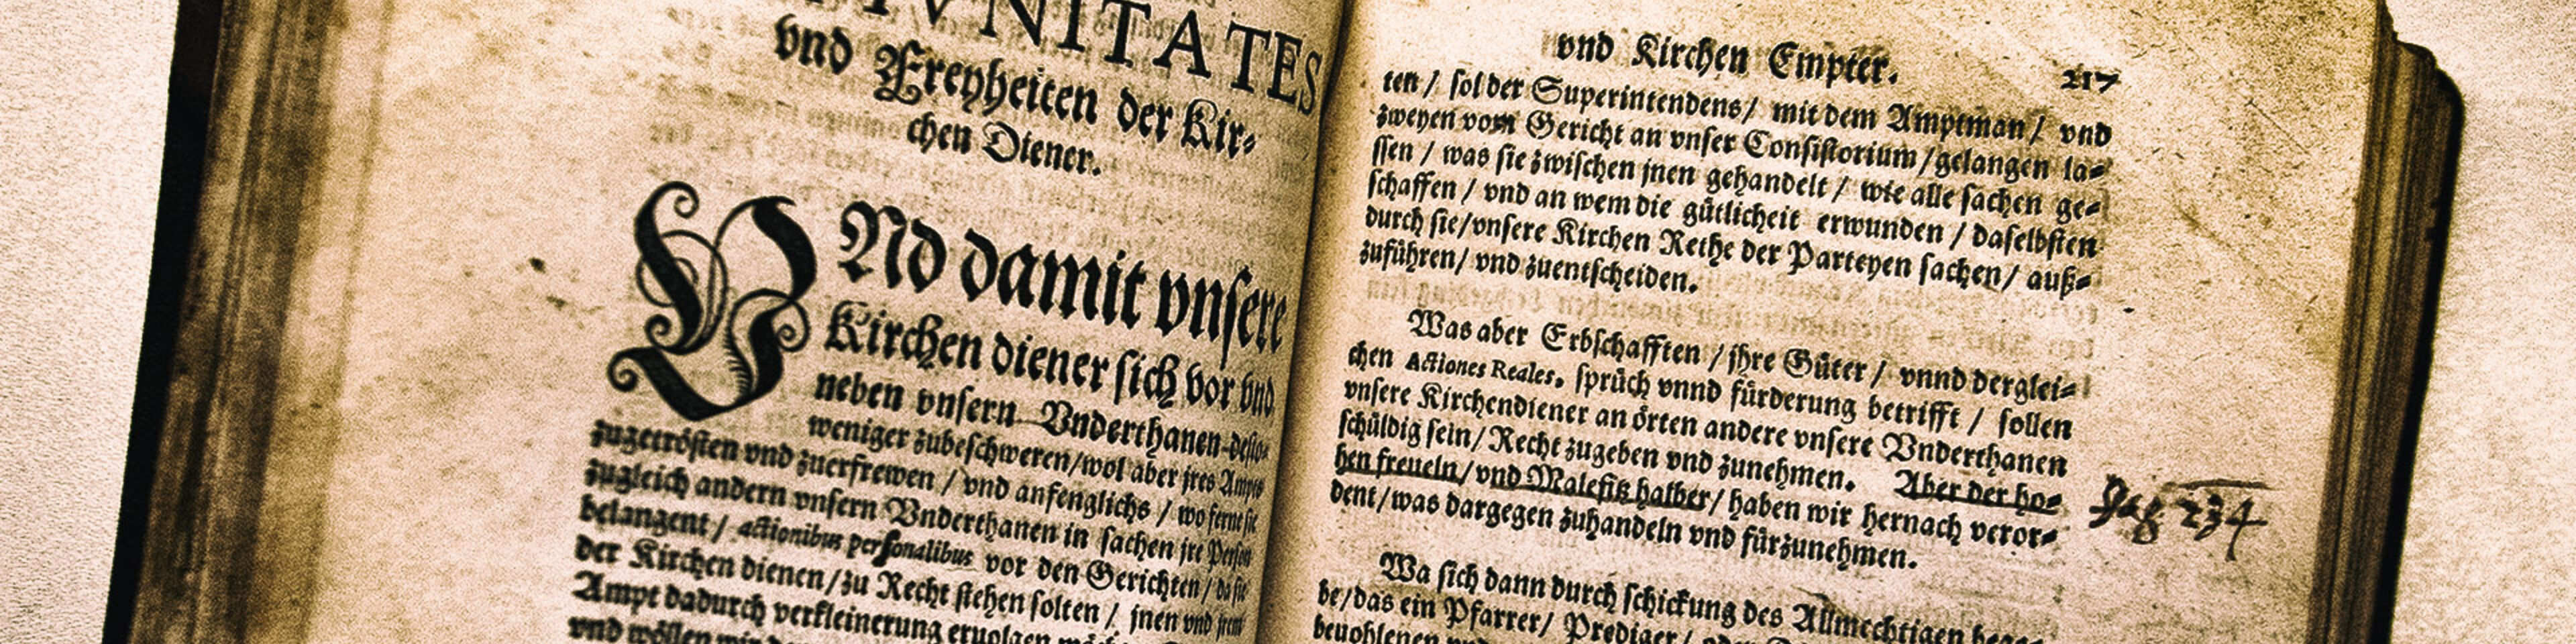 VNITATES
vnd Freyheiten der Kir-
chen Diener.
VNd damit vnsere
Kirchen diener sich vor vnd
neben vnsern Vnderthanen desto-
weniger zubeschweren/wol aber jres Ampts
zugetrösten vnd zuerfrewen / vnd anfenglichs / wo ferne sie
zugleich andern vnsern Vnderthanen in sachen jre Person
belangent / actionibus personalibus vor den Gerichten / da sie
der Kirchen dienen/zu Recht stehen solten / jnen vnd jrem
Ampt dadurch verkleinerung eruolgen
vnd wöllen wir
vnd Kirchen Empter. 217
ten / sol der Superintendens/ mit dem Amptman / vnd
zweyen vom Gericht an vnser Consistorium/gelangen la-
ssen / was sie zwischen jnen gehandelt / wie alle sachen ge-
schaffen / vnd an wem die gütlicheit erwunden / daselbsten
durch sie/vnsere Kirchen Rethe der Parteyen sachen/ auß-
zuführen/ vnd zuentscheiden.
Was aber Erbschafften / jhre Güter / vnnd derglei-
chen Actiones Reales. sprüch vnnd fürderung betrifft / sollen
vnsere Kirchendiener an örten andere vnsere Vnderthanen
schüldig sein/ Recht zugeben vnd zunehmen. Aber der ho-
hen freueln/ vnd Malefitz halber/ haben wir hernach veror- Pag 234
dent/was dargegen zuhandeln vnd fürzunehmen.
Wa sich dann durch schickung des Allmechtigen bege-
be/das ein Pfarrer/ Prediger/
beuohlenen